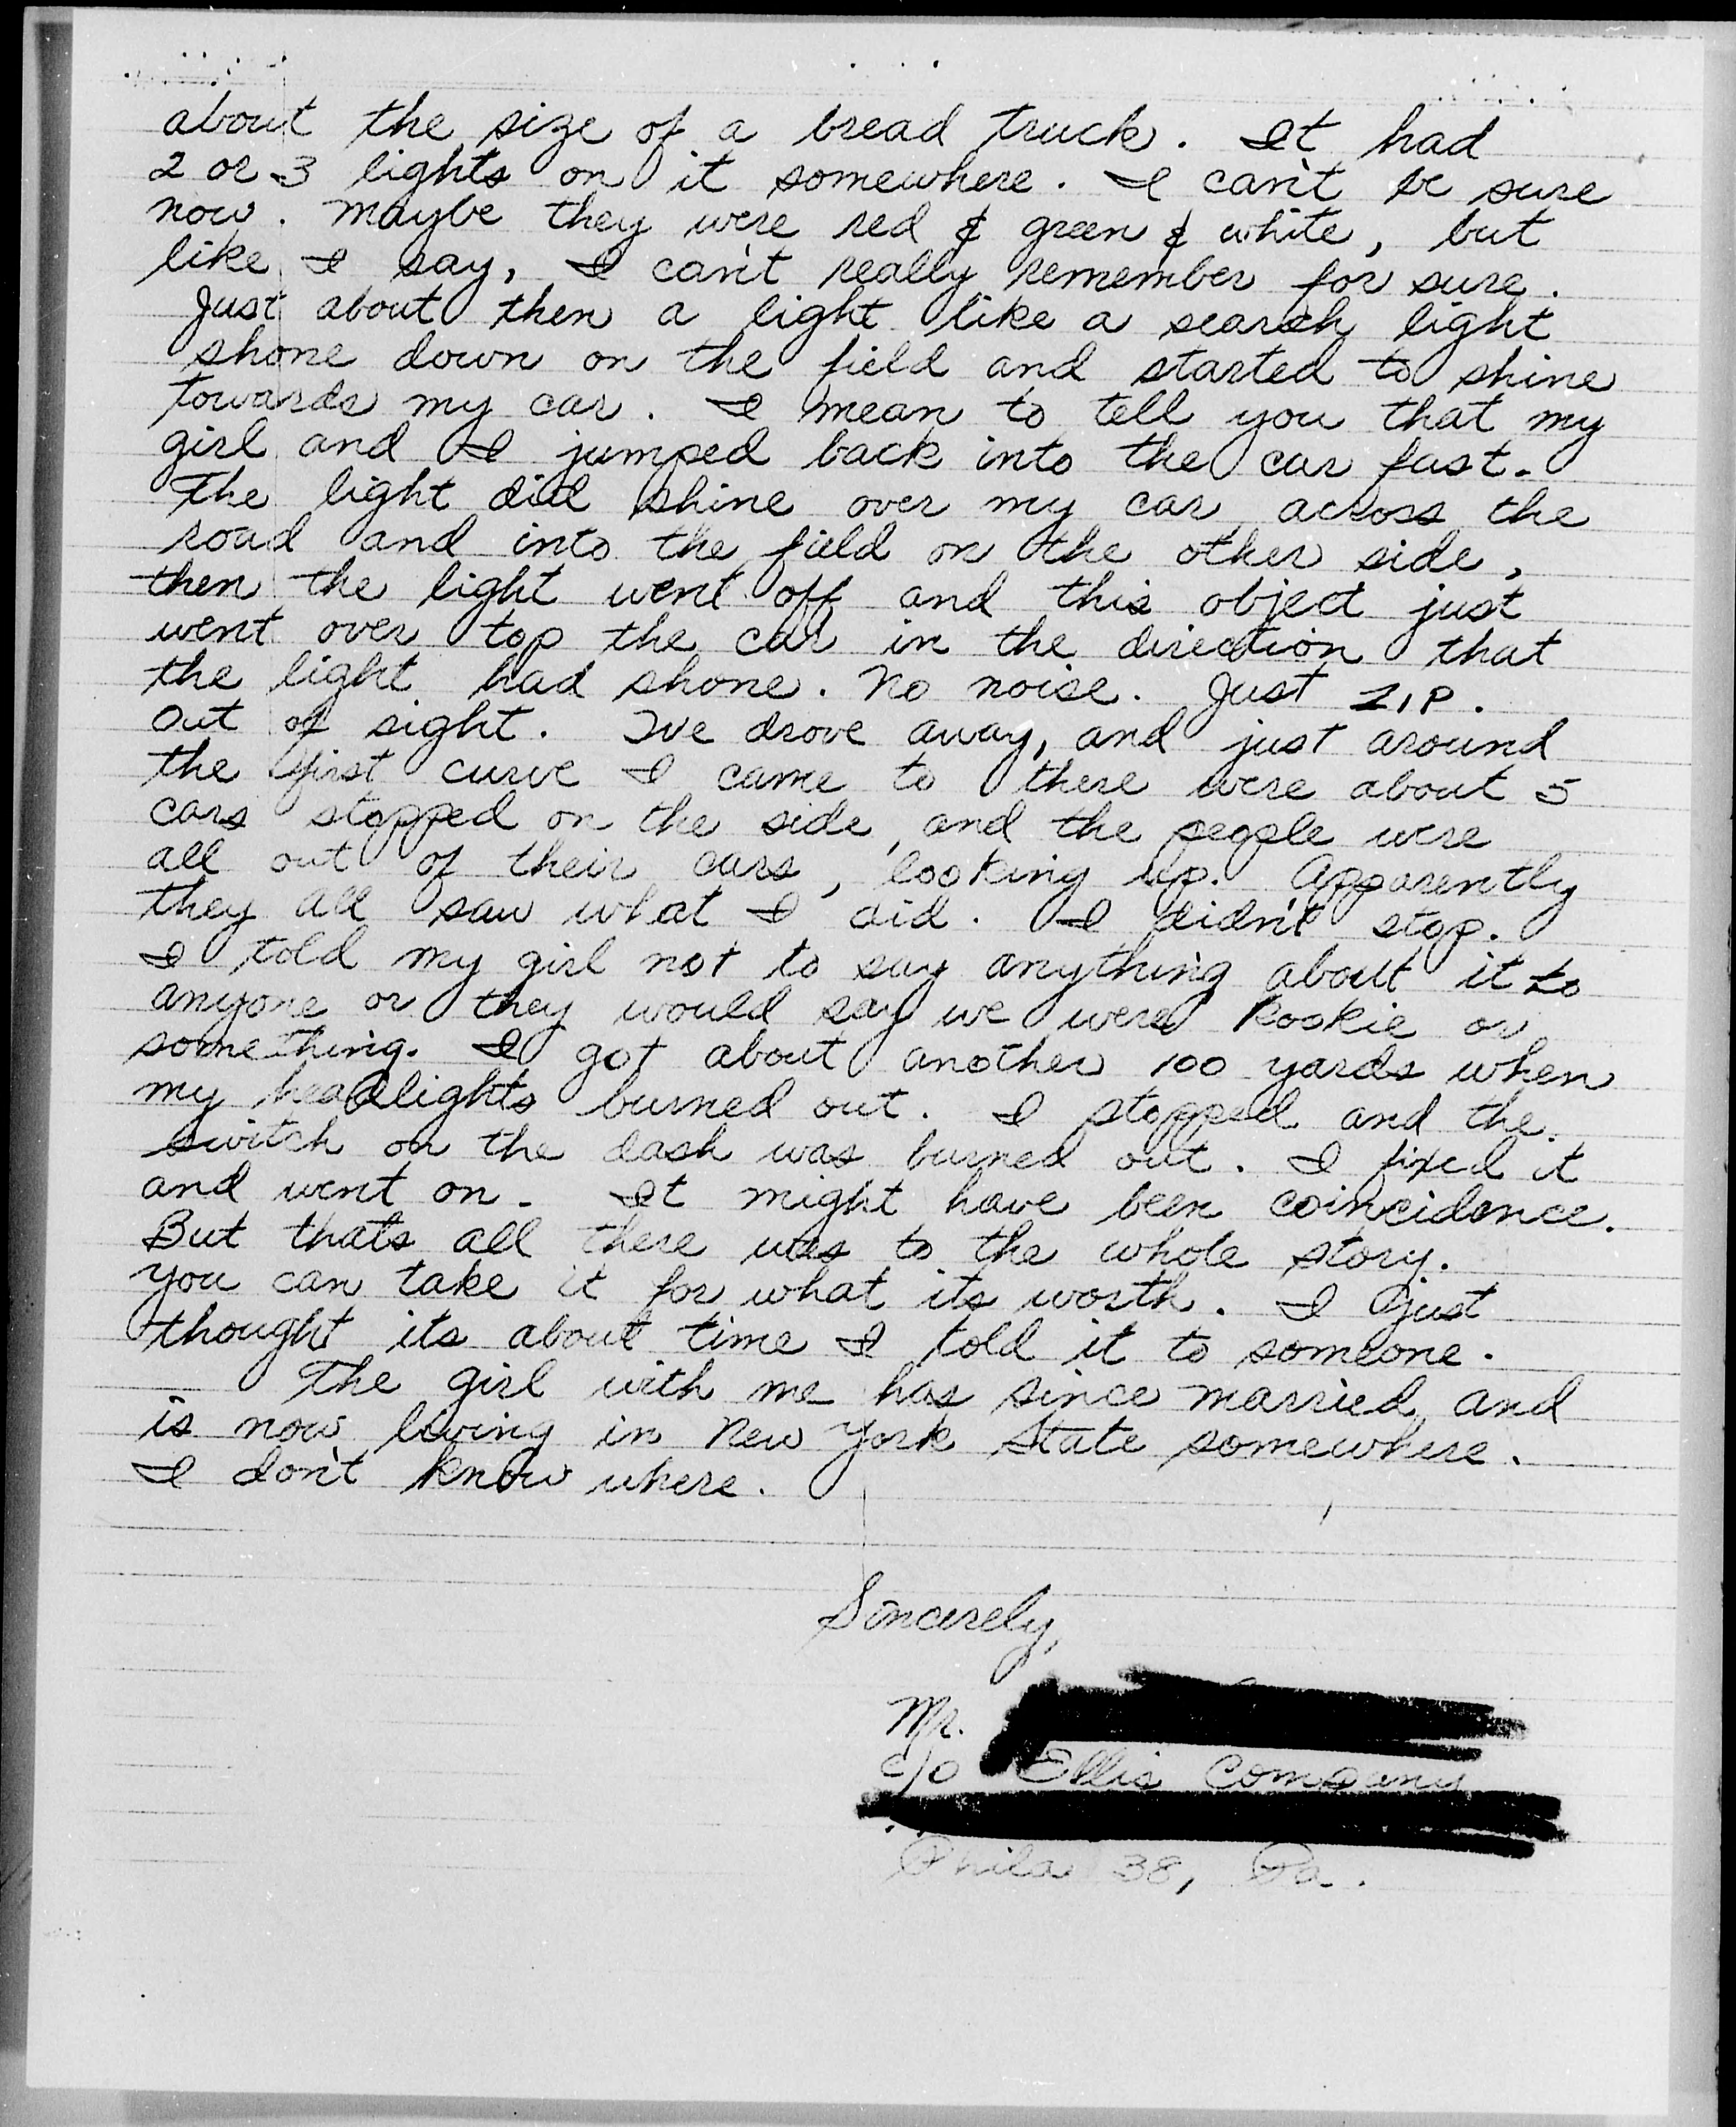 about the size of a bread truck. It had
2 or 3 lights on it somewhere. I can't be sure
now. Maybe they were red & green & white, but
like I say, I can't really remember for sure.
Just about then a light like a search light
shone down on the field and started to shine
towards my car. I mean to tell you that my
girl and I jumped back into the car fast.
The light did shine over my car across the
road and into the field on the other side,
then the light went off and this object just
went over top the car in the direction that
the light had shone. No noise. Just ZIP.
Out of sight. We drove away, and just around
the first curve I came to there were about 5
cars stopped on the side, and the people were
all out of their cars, looking up. Apparently
they all saw what I did. I didn't stop.
I told my girl not to say anything about it to
anyone or they would say we were kookie or
something. I got about another 100 yards when
my headlights burned out. I stopped and the
switch on the dash was burned out. I fixed it
and went on. It might have been coincidence.
But thats all there was to the whole story.
You can take it for what its worth. I just
thought its about time I told it to someone.
The girl with me has since married and
is now living in New York State somewhere.
I don't know where.
Sincerely,
Mr.
c/o Ellis Company
Phila 38, Pa.